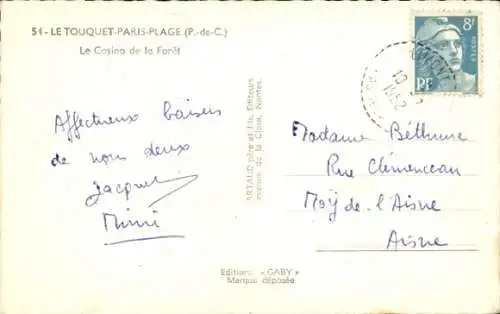 54 - LE TOUQUET-PARIS-PLAGE (P.-de-C.)
Le Casino de la Forêt
Affectueux baisers
de nous deux
Jacques
Mimi
ARTAUD père et fils, Editeurs
avenue de la Close, Nantes.
Editions « GABY »
Marque déposée
8F
POSTES
RF
10
1952
Madame Béthune
Rue Clémenceau
Moÿ-de-l'Aisne
Aisne